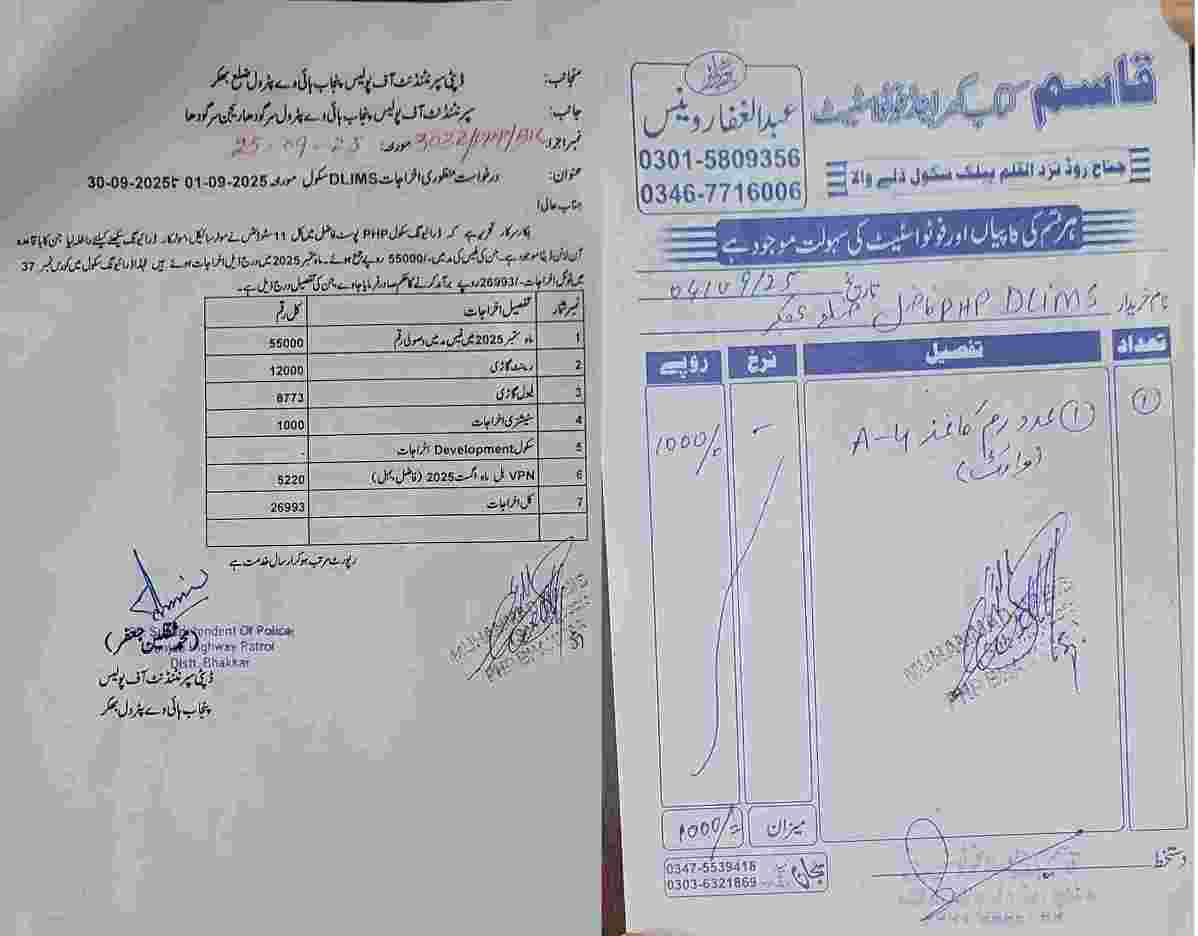 منجانب: ڈپٹی سپرنٹنڈنٹ آف پولیس پنجاب ہائی وے پٹرول ضلع بھکر
جانب: سپرنٹنڈنٹ آف پولیس پنجاب ہائی وے پٹرول سرگودھا ریجن سرگودھا
نمبر اجرا: 3022/PHP/BK مورخہ: 25-09-25
عنوان: درخواست منظوری اخراجات DLIMS سکول مورخہ 01-09-2025 تا 30-09-2025
جناب عالی!
بکار سرکار تحریر ہے کہ ڈرائیونگ سکول PHP پوسٹ فاضل میں کل 11 سٹوڈنٹس نے موٹر سائیکل، موٹر کار ڈرائیونگ سیکھنے کیلئے داخلہ لیا جن کا باقاعدہ
آن لائن ڈیٹا موجود ہے۔ جن کی فیس کی مد میں -/55000 روپے جمع ہوئے۔ ماہ ستمبر 2025 میں درج ذیل اخراجات ہوئے ہیں لہذا ڈرائیونگ سکول میں کورس نمبر 37
میں ٹوٹل اخراجات -/26993 روپے برآمد کرنے کا حکم صادر فرمایا جاوے، جن کی تفصیل درج ذیل ہے۔
نمبر شمار تفصیل اخراجات کل رقم
1 ماہ ستمبر 2025 میں فیس مد میں وصولی رقم 55000
2 رینٹ گاڑی 12000
3 فیول گاڑی 8773
4 سٹیشنری اخراجات 1000
5 سکول Development اخراجات -
6 VPN بل ماہ اگست 2025 (فاضل، بہل) 5220
7 کل اخراجات 26993
رپورٹ مرتب ہو کر ارسال خدمت ہے
Superintendent Of Police
Highway Patrol
Distt. Bhakkar
(محمد ثقلین جعفر)
ڈپٹی سپرنٹنڈنٹ آف پولیس
پنجاب ہائی وے پٹرول بھکر
قاسم بک سنٹر اینڈ فوٹو سٹیٹ
عبدالغفار وینس
0301-5809356
0346-7716006
جناح روڈ نزد القلم پبلک سکول ذلے والا
ہر قسم کی کاپیاں اور فوٹو سٹیٹ کی سہولت موجود ہے
تاریخ 04/09/25
نام خریدار PHP DLIMS فاضل ضلع بھکر
تعداد تفصیل نرخ روپے
① ① عدد رم کاغذ A-4 - 1000/-
میزان 1000/-
دستخط
0347-5539418
0303-6321869